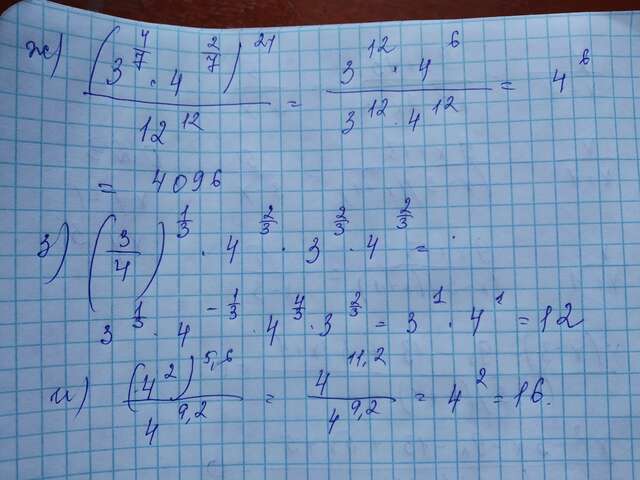 ж) (3^(4/7) · 4^(2/7))^21 / 12^12 = 3^12 · 4^6 / 3^12 · 4^12 = 4^6
= 4096
з) (3/4)^(1/3) · 4^(2/3) · 3^(2/3) · 4^(2/3) =
3^(1/3) · 4^(-1/3) · 4^(4/3) · 3^(2/3) = 3^1 · 4^1 = 12
и) (4^2)^5,6 / 4^9,2 = 4^11,2 / 4^9,2 = 4^2 = 16.